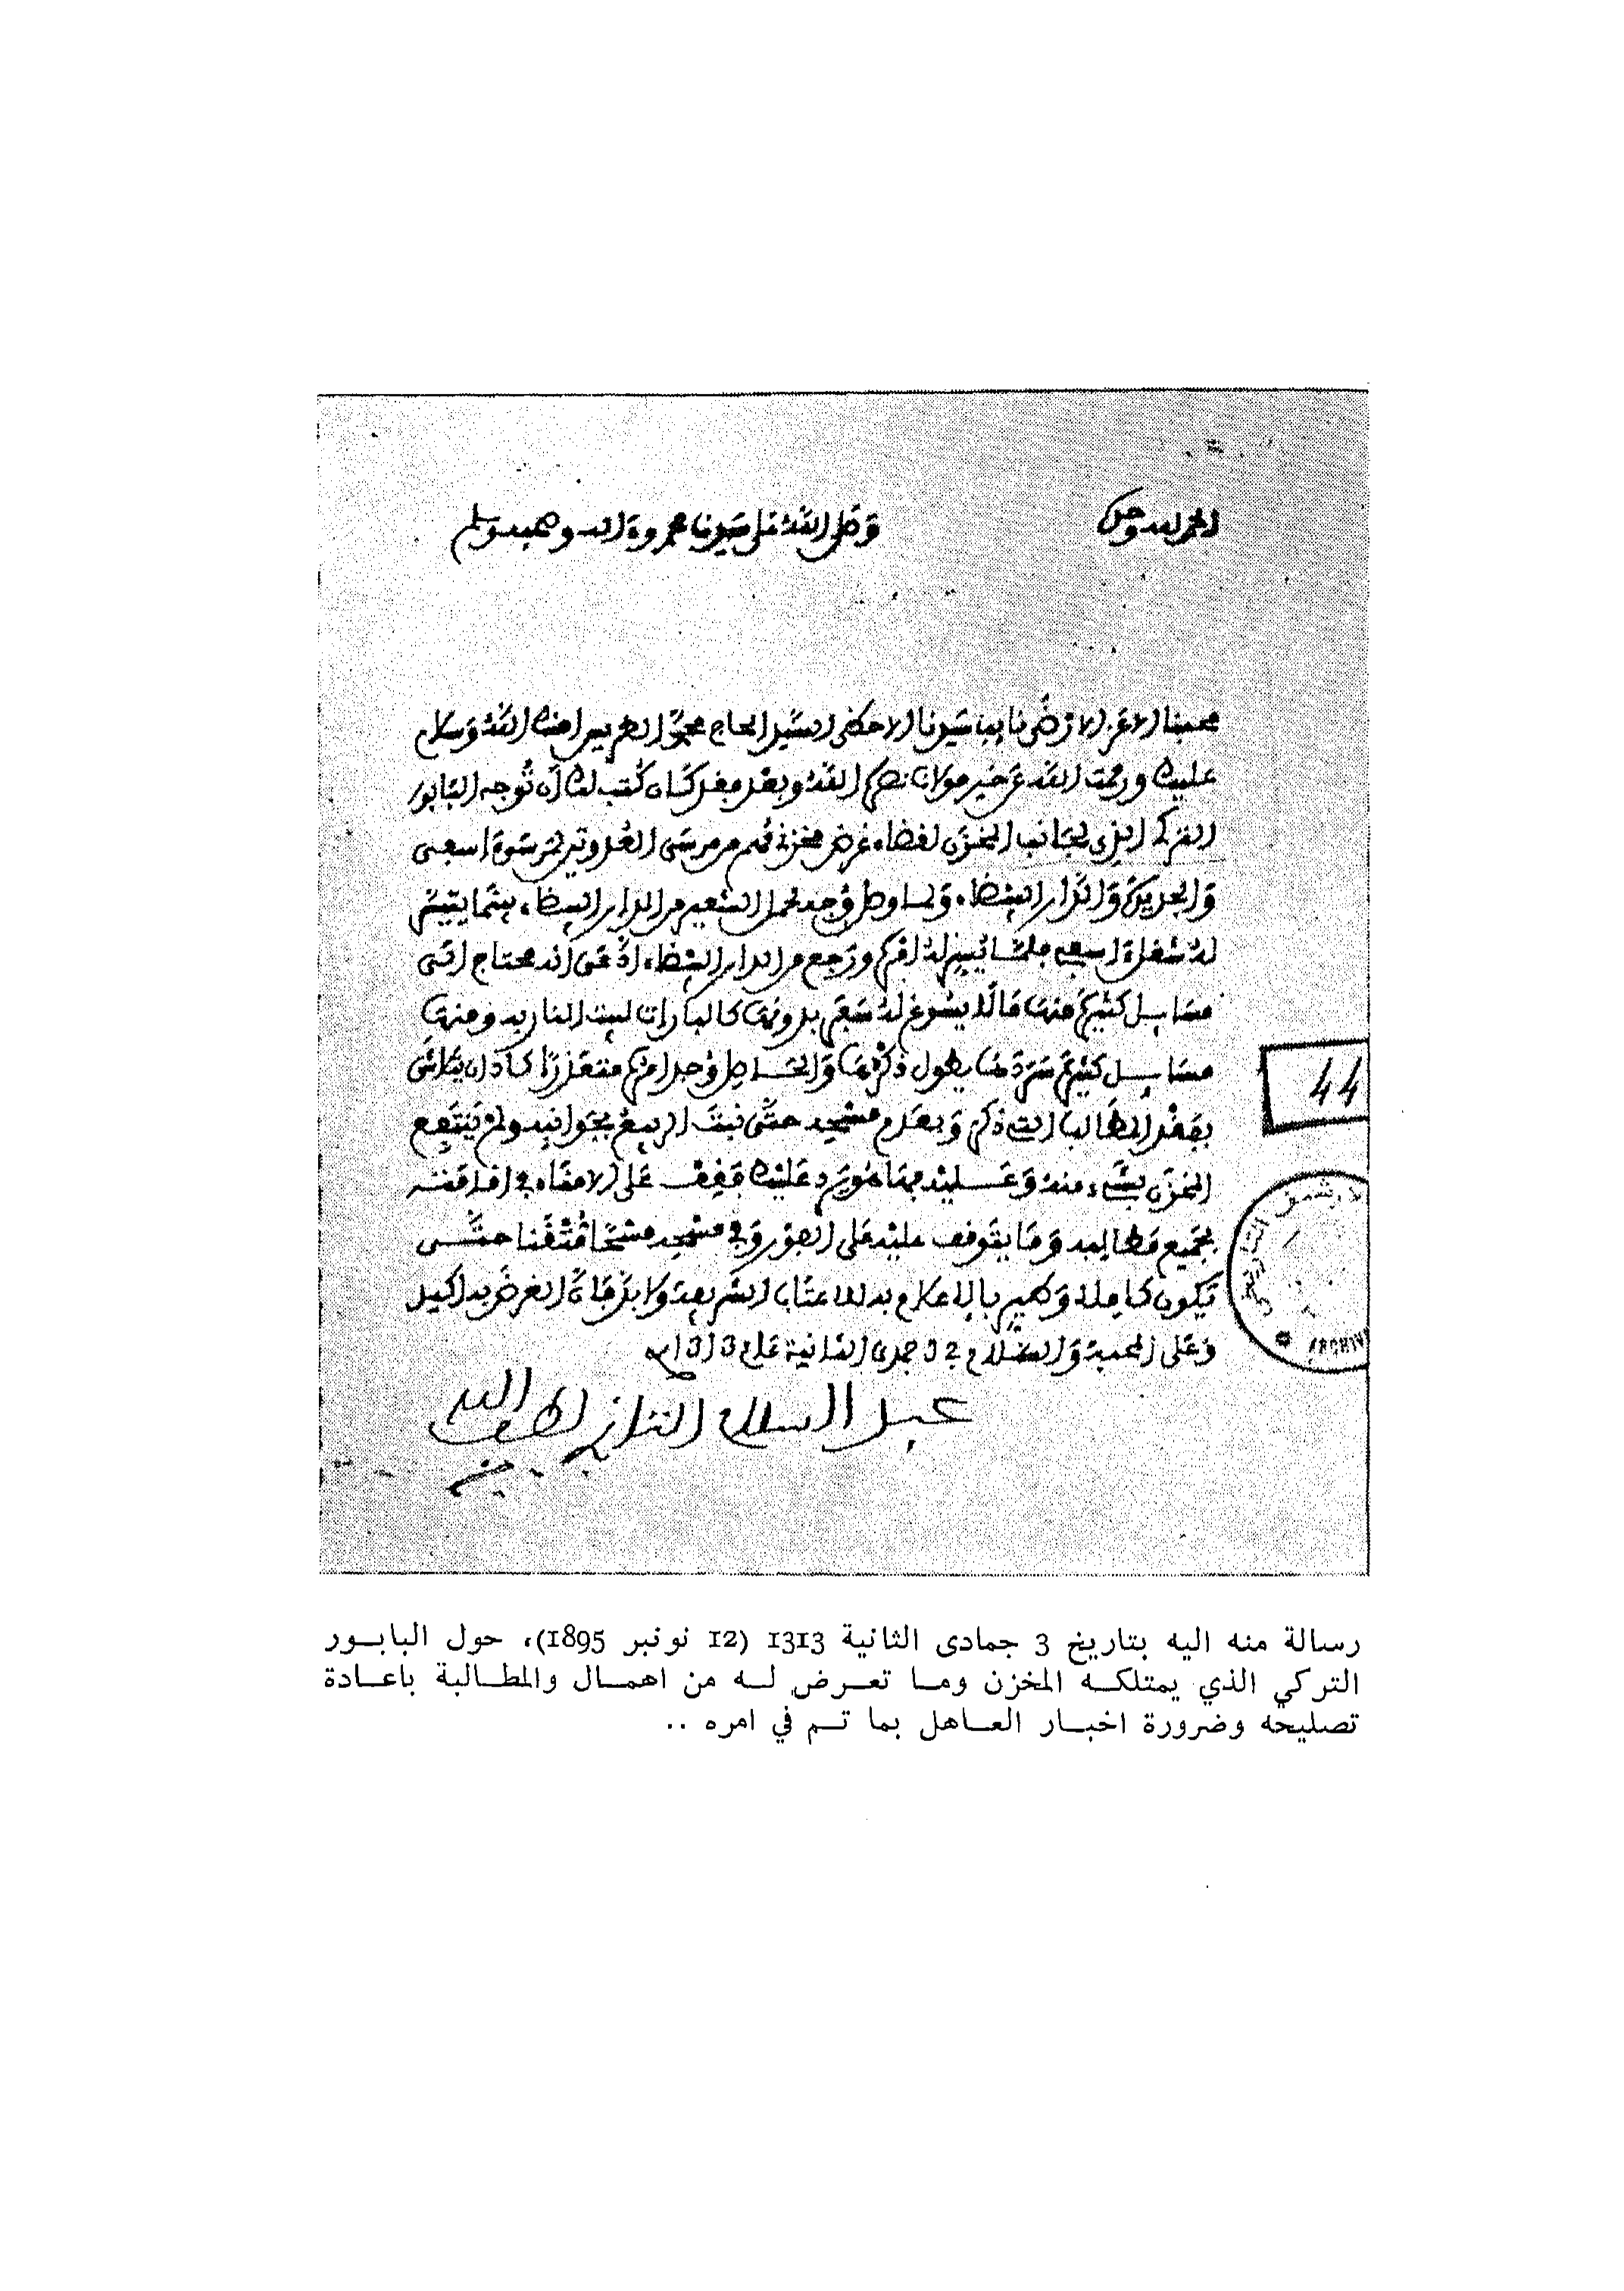 الحمد لله وحده
وصلى الله على سيدنا محمد وءاله وصحبه وسلم
محبنا الاعز الارضى نايب سيدنا الاحظى السيد الحاج محمد الطريس امنك الله وسلام
عليك ورحمت الله عن خير مولانا نصره الله وبعد فقد كان كتب لك ان توجه البابور
التركي الذي لجانب المخزن لقضاء غرض مخزني من مرسى العدوتين واسفى
والجديدة والدار البيضاء ولما وصل وجه لحمل الشعير من الدار البيضاء بينما يتيسر
له شغل اسفى فلما تيسر له افكر ورجع من الدار البيضاء ادعى انه محتاج الى
مسايل كثيرة منها ما لا يسوغ له سفر بدونها كالبكرات لبيت النار به ومنها
مسايل كثيرة سردها يطول ذكرها والحاصل وجد امره متعذرا كاد ان يتلاشى
بفقد المطالب التي ذكر وبعدم مسحه حتى نبت الربيع بجوانبه ولم ينتفع
المخزن بشيء منه وعليه فها هو يرد عليك فقف على الامناء في اقامته
بجميع مطالبه وما يتوقف عليه على الفور وفي مسحه مسحا متقنا حتى
تكون كاملة وطير بالاعلام به للاعتاب الشريفة ولا بد فان الغرض به اكيد
وعلى المحبة والسلام في 3 جمدى الثانية عام 1313
عبد السلام التازي لطف الله به
44
ARCHIV
رسالة منه اليه بتاريخ 3 جمادى الثانية 1313 (12 نونبر 1895)، حول البابور
التركي الذي يمتلكه المخزن وما تعرض له من اهمال والمطالبة باعادة
تصليحه وضرورة اخبار العاهل بما تم في امره ..